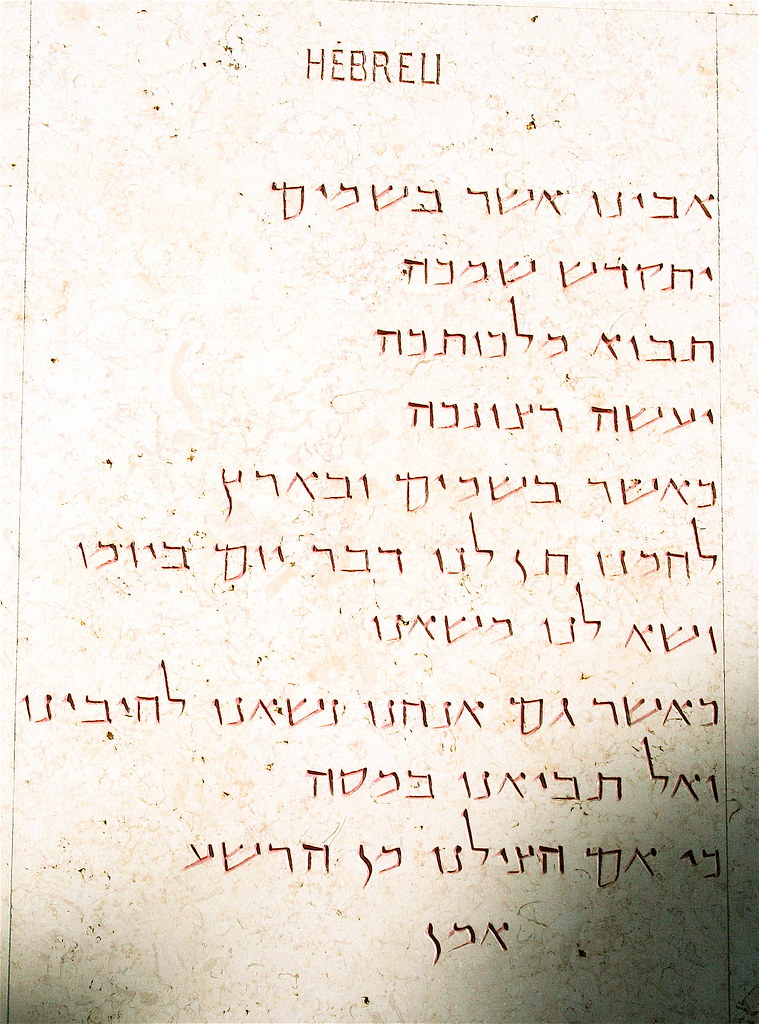 HÉBREU
אבינו אשר בשמים
יתקדש שמכה
תבוא מלכותכה
יעשה רצונכה
כאשר בשמים ובארץ
לחמנו תן לנו דבר יום ביומו
ושא לנו משאנו
כאשר גם אנחנו נשאנו לחיבינו
ואל תביאנו במסה
כי אם הצילנו מן הרישע
אמן